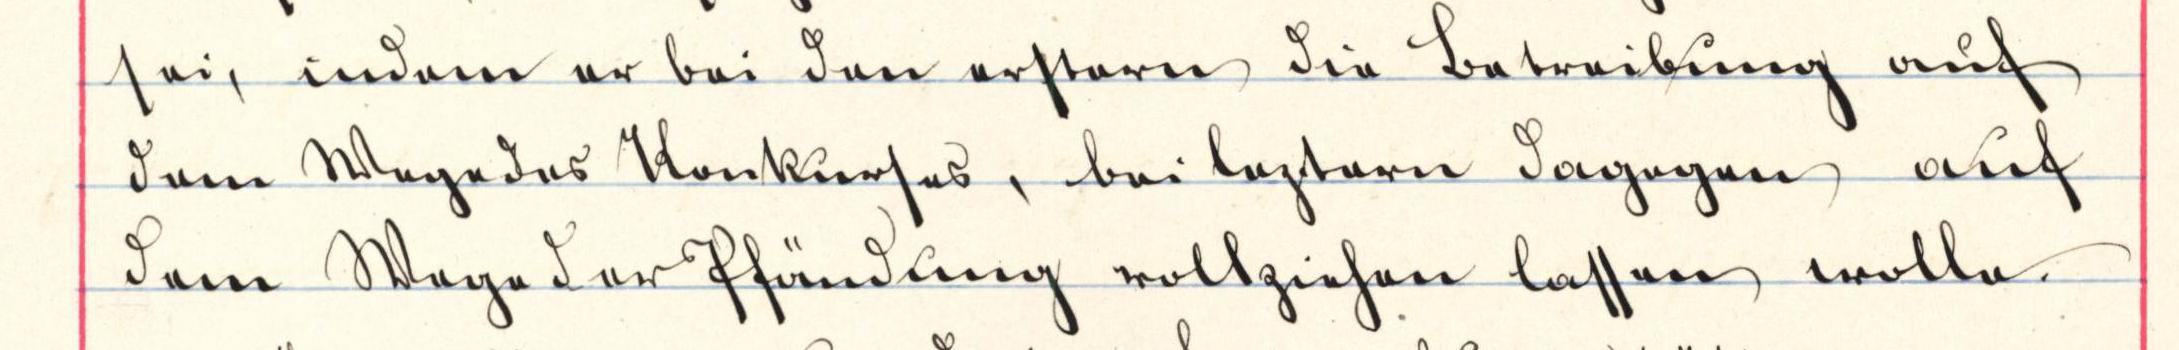 sei, indem er bei den erstern die Betreibung auf
dem Wege des Konkurses, bei leztern dagegen auf
dem Wege der Pfändung vollziehen lassen wolle.